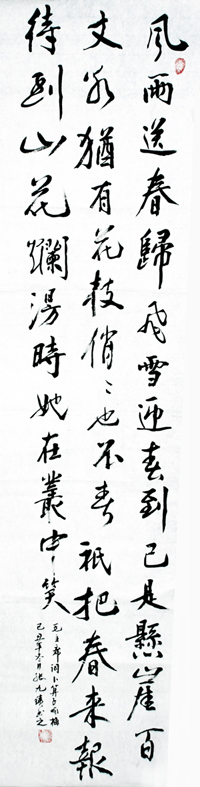 風雨送春歸飛雪迎春到已是懸崖百
丈冰猶有花枝俏〻也不春祇把春來報
待到山花爛漫時她在叢中笑
毛主席詞卜算子咏梅
己丑年冬月